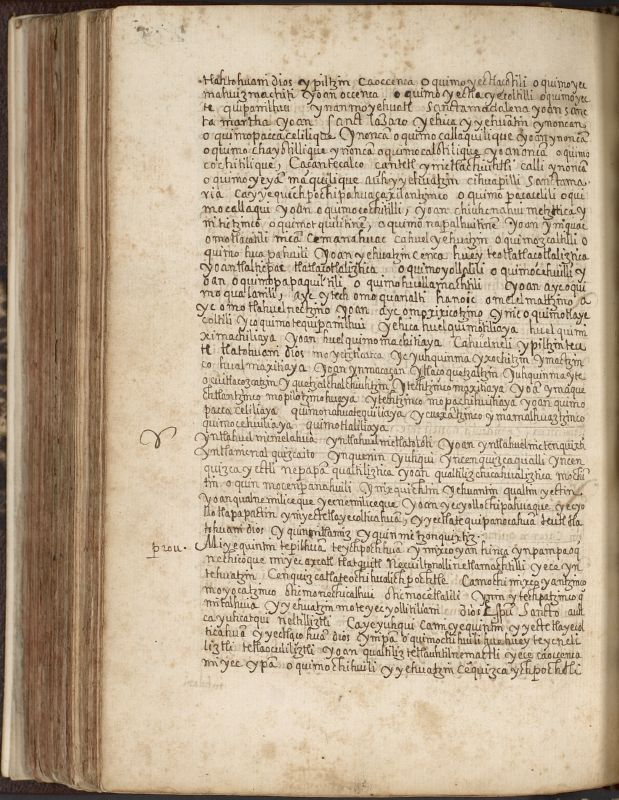 tlahtohuani dios ypiltzin Caoccenca oquimoyectlachtili oquimoyec
mahuizmachiti yoan occenca, oquimoyectlacyetoltilli oquimoyec
te quipanilhui ynanmoyehuatl Sanctamadalena yoan sanc
ta martha yoan Sanct lazaro yehica yyehuatin ynoncan
oquimopaccacelilique Ynoncan oquimocallaquilique yoan ynoncan
oquimo chaystillique ynoncan oquimocalotilique yoanoncan oquimo
cochitilique, Caçantecalco cantetl ymictlachiuhtli calli ynoncan
oquimoyeyan maquilique auh yyehuatzin cihuapilli Sanctama
ria Cayyequichpochipahuacaxilontzinco oquimo pacacelili oqui
mocallaqui yoan oquimocochitilli, yoan chiuhcnahui metztica y
mititzinco, oquimotquilitine, oquimonapalhuitine yoan yniquac
omotlacatili nican Cemanahuac Cahuel yehuatzin oquimozcaltili o
quimo huapahuili yoan yehuatzin Cenca huey tetlatlacotlaliztica
yoantlalticpac tlatlacotlaliztica oquimoyollalili oquimocehuilli y
oan oquimopapaquiltili oquimohuellamachtili yoan ayc oqui
moqualanili, ayc ytech omoqualalti hanoce omelelmachtzino a
yc omotlahuelnectzino yoan ayc ompxixicotzino ynic oquimotlaye
coltili yc oquimotequipanilhui yehica huelquimomiliaya huel quim
iximachiliaya yoan huelquimomachitiaya Cahuelneli ypiltzinteu
tl tlatohuani dios moyetzticatca yc yuhquinma yxochitzin ymactzin
co huialmaxitiaya yoan ynmacaçan ytlaçoquetzaltzin yuhquinma yte
ocuitlacozcatzin yquetzalchalchiuhtzin ytentzinco maxitiaya yoan ymaque
chtlantzinco mopilotzinohueya ytechtzinco mopachihuitiaya yoan quimo
paccaceliliaya quimonahuatequiliaya ycuexantzinco ymamalhuaztzinco
quimocehuiliaya quimotlaliliaya
yntlahuelmenelahua yntlahuelmetlatoloti yoan yntlahuelnictenquixti
yntlamenalquizcaito ynquenin yuhqui yncenquizcaqualli yncen
quizca yectli nepapan qualtiliztica yoan qualtiliz chicahualiztica mochi
tin oquinmocenpanahuili ynixquichtin yehuantin qualtin yectin
yoanqualnemiliceque yecnemiliceque yoan yecyollochipahuaque yecyo
llotlapapactin ynyectetlayecoltiahua, yyectlatequipanocahua teutl tla
tohuani dios yquintlamiz yquinmitzonquixtiz
prou. Miyequintin tepilhuan teychpochhua ymixcoyan hinca ynpampa oq
nechicoque miyec axcatl tlatquitl necuiltonolli netlamachtilli yece yn
tehuatzin Cenquizcatlateochihualichpochtle Camochimixcoyantzinco
moyocatzinco Otimonechicalhui Otimocentlalili ynin ytechpatzinco q
mitalhuia Yyehuatzin moteyecyollitiliani dios espu Sancto auh
cayuhcatqui neltiliztli Cayeyuhqui Camiyequintin yyectetlayecol
ticahuan yyectlaçohuan dios ympan oquimochihuili yuhhuey teycneli
liztli tetlaocoliliztli yoan qualtiliz tetlauhtilnemactli yece caoccenca
miyec ypan oquimochihuili yyehuatzin cequizca ychpochtli